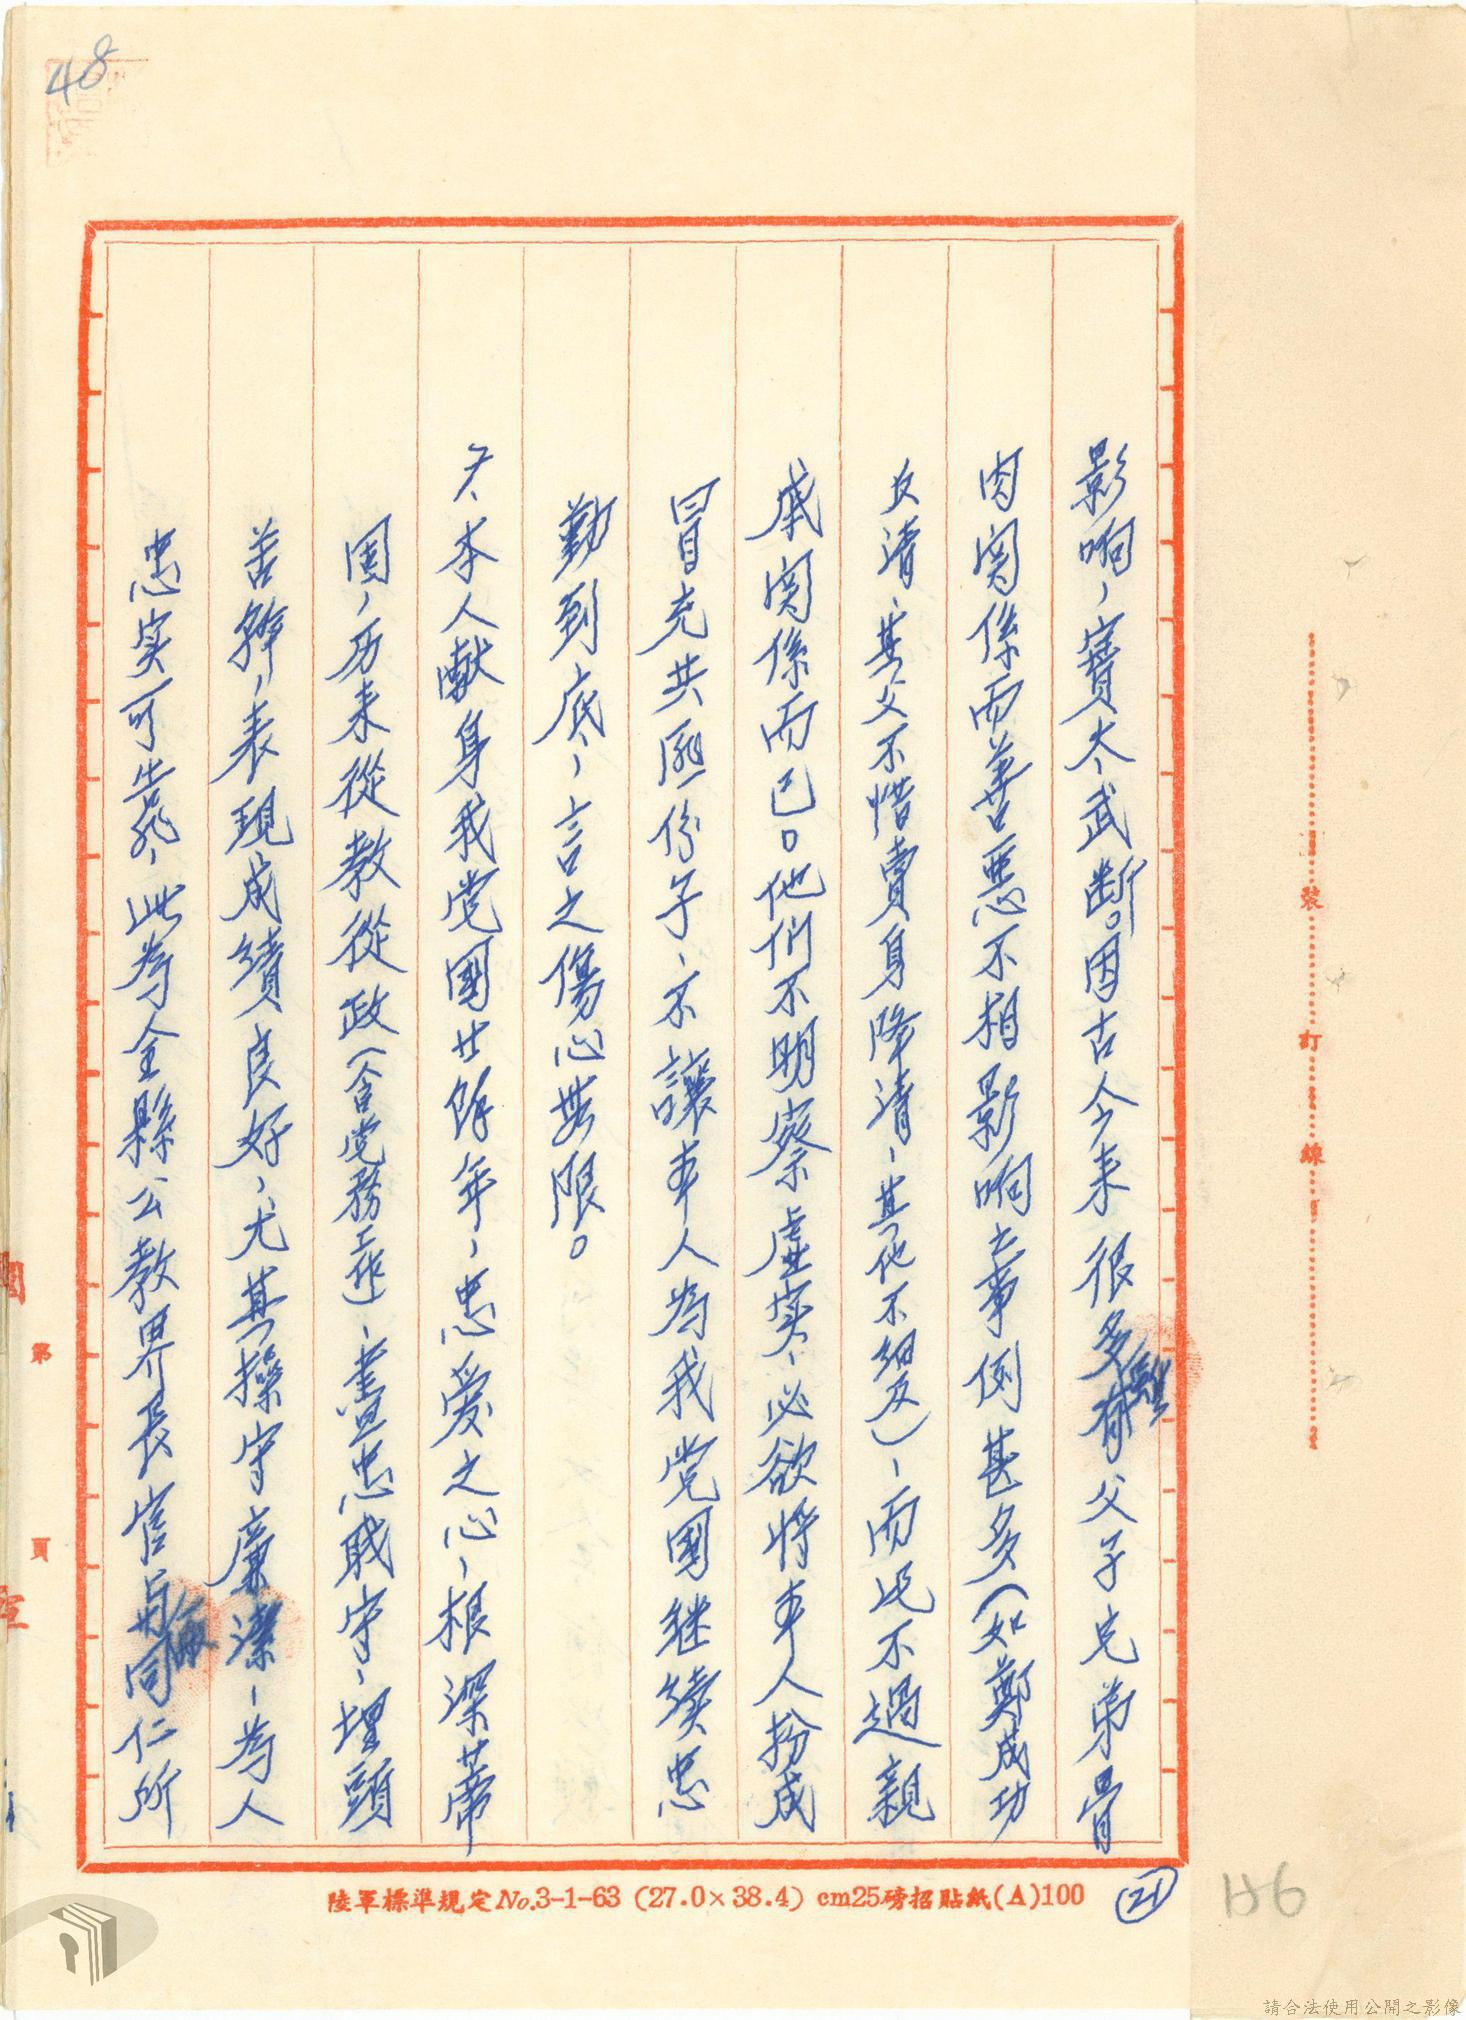 48
影响，實太武斷。因古今来很多雖有父子兄弟骨
肉関係而善惡不相影响之事例甚多（如鄭成功
反清、其父不惜賣身降清、其他不細及）、而此不過親
戚関係而已。他們不明察虛实、必欲将本人扮成
冒充共匪份子、不讓本人為我党國継续忠
勤到底、言之傷心無限。
六、本人献身我党國廿餘年，忠爱之心，根深蒂
固，历来從教從政（含党務工作）、盡忠職守、埋頭
苦幹，表現成績良好，尤其操守廉潔、為人
忠实可靠，此為全縣公教界長官与同仁所
陸軍標準規定No.3-1-63 (27.0×38.4) cm25磅招貼紙(A)100
21
126
裝
訂
線
第
頁
請合法使用公開之影像